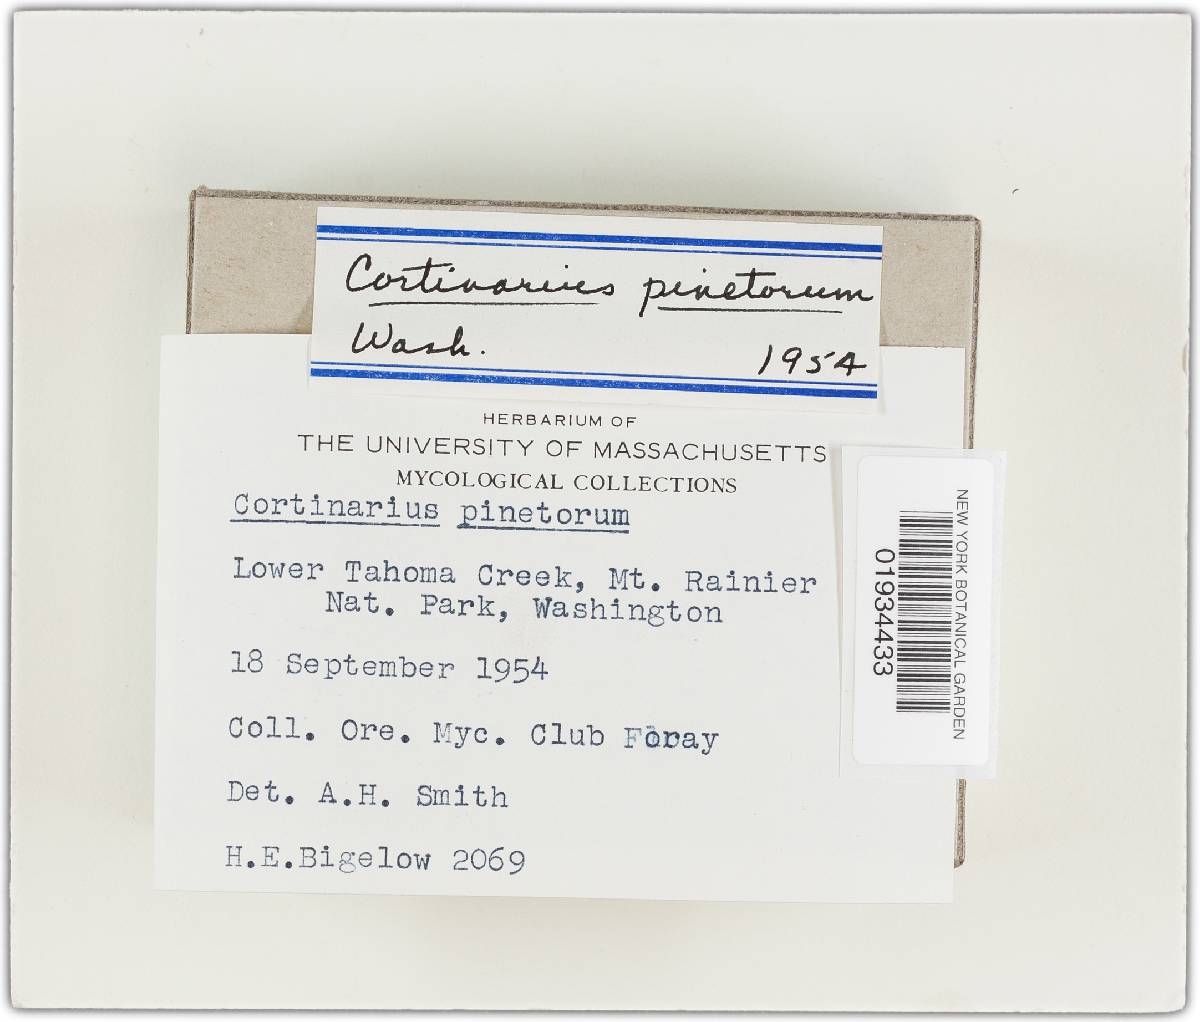 Cortinarius pinetorum
Wash. 1954
HERBARIUM OF
THE UNIVERSITY OF MASSACHUSETTS
MYCOLOGICAL COLLECTIONS
Cortinarius pinetorum
Lower Tahoma Creek, Mt. Rainier
Nat. Park, Washington
18 September 1954
Coll. Ore. Myc. Club Foray
Det. A.H. Smith
H.E.Bigelow 2069
NEW YORK BOTANICAL GARDEN
01934433